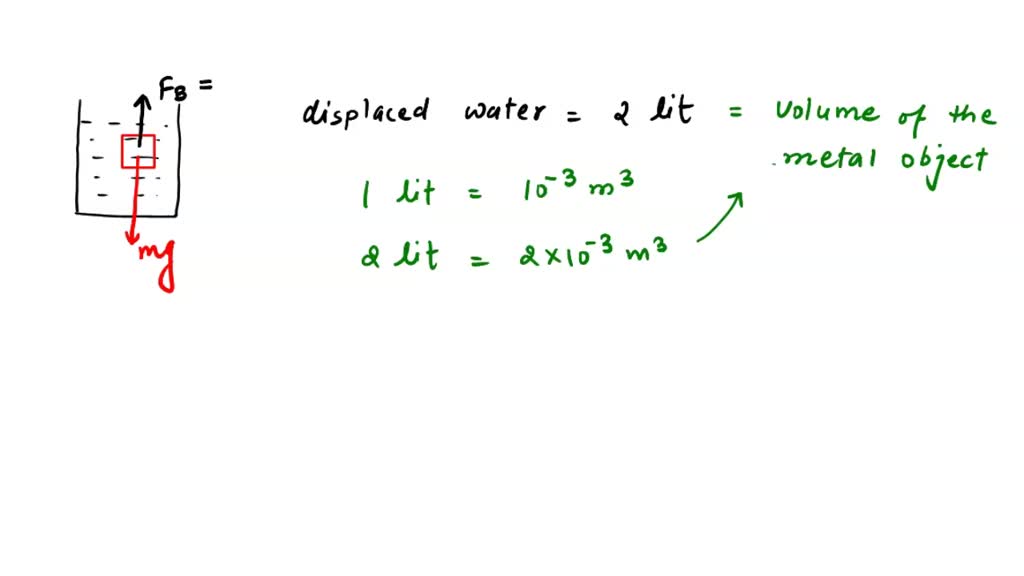 F_B =
displaced water = 2 lit = volume of the
metal object
1 lit = 10⁻³ m³
2 lit = 2×10⁻³ m³
mg